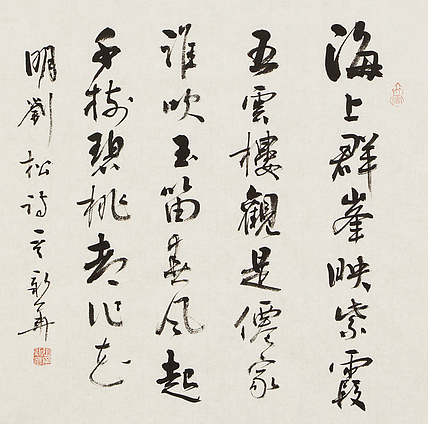 海上群峯映紫霞
五雲樓觀是僊家
誰吹玉笛春風起
千樹碧桃都作花
明劉松詩 新華